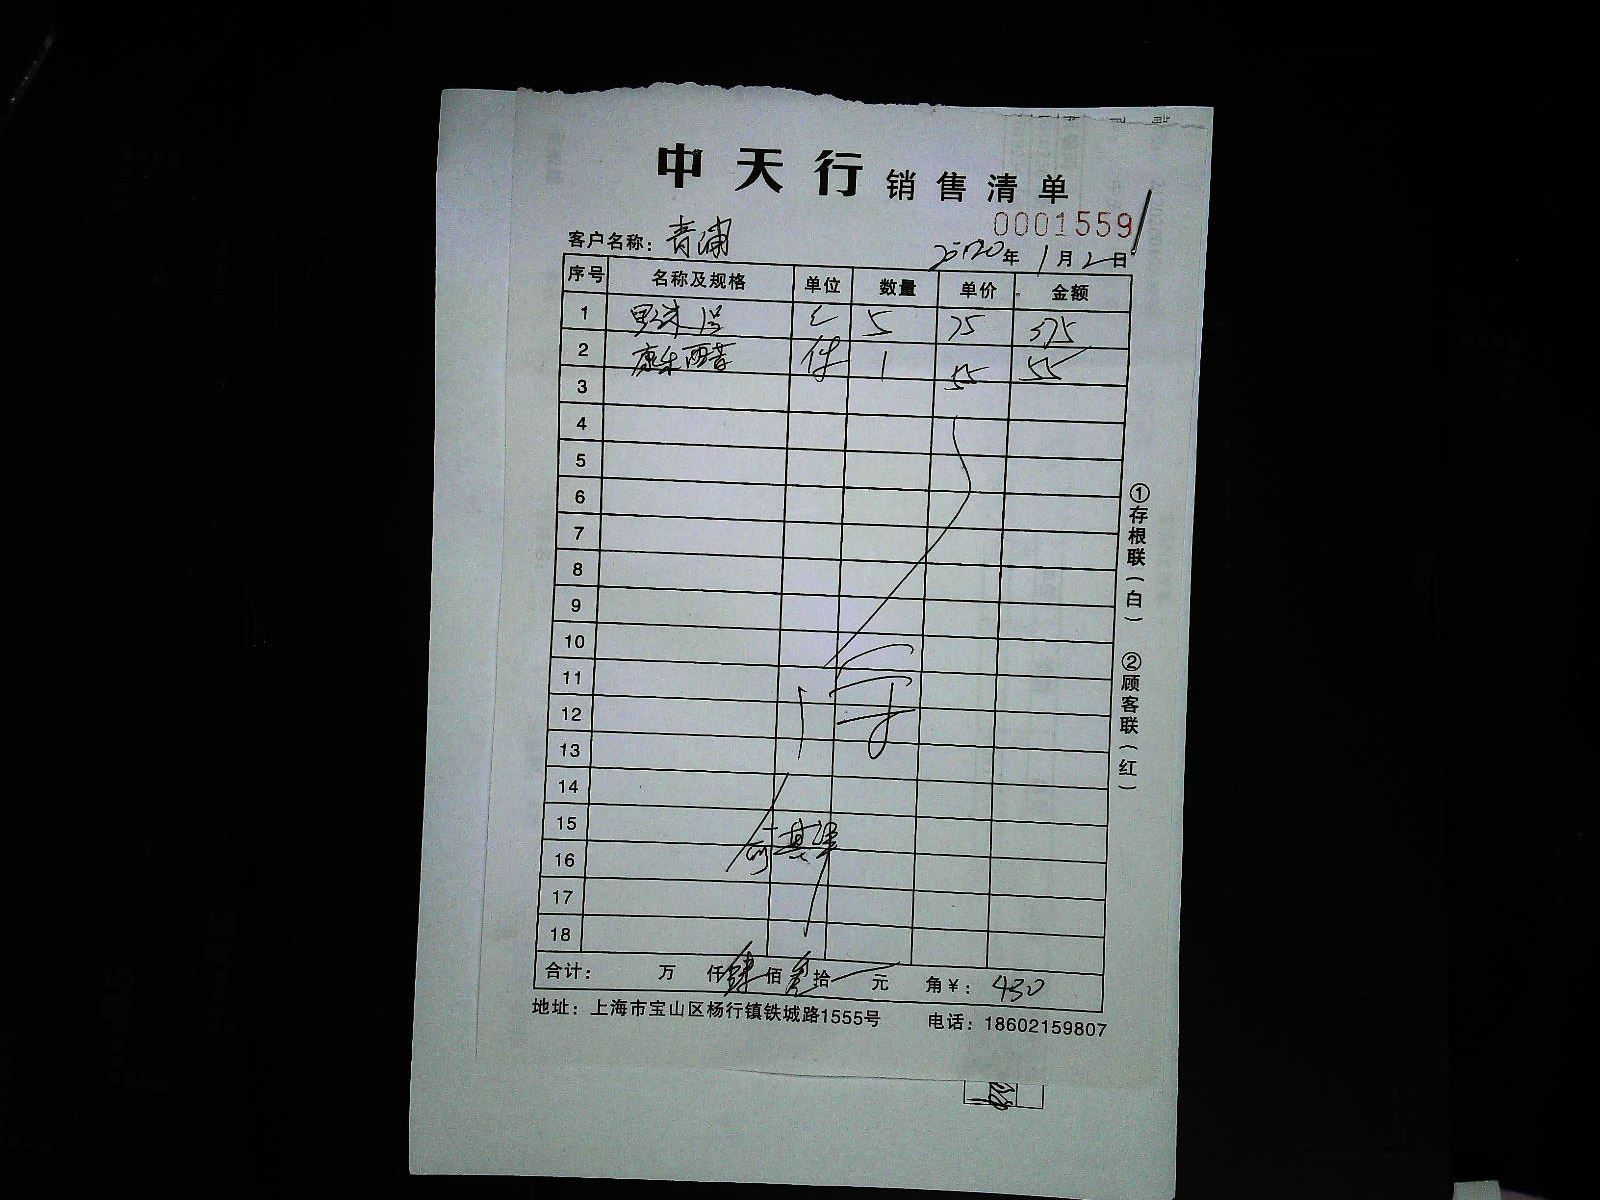 中天行 销售清单
0001559
客户名称： 青浦 2020年1月2日
序号 名称及规格 单位 数量 单价 金额
1 5 75 375
2 件 1 55 55
3
4
5
6
7
8
9
10
11
12
13
14
15
16
17
18
合计： 万 仟肆佰叁拾 元 角￥： 430
地址：上海市宝山区杨行镇铁城路1555号 电话：18602159807
①存根联（白） ②顾客联（红）